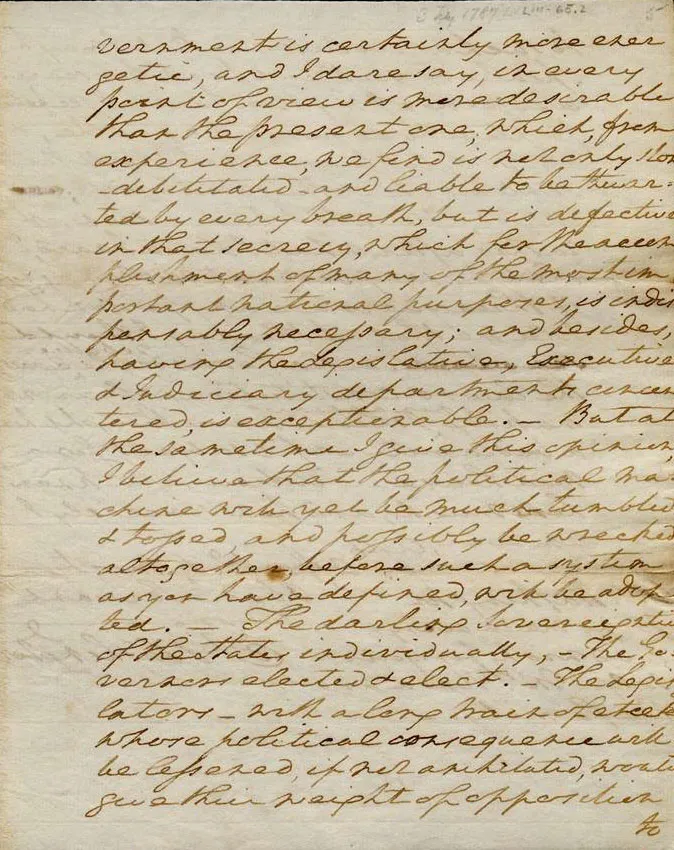 3 Feby 1787
vernment is certainly more ener
getic, and I dare say, in every
point of view is more desirable
than the present one, which, from
experience, we find is not only slow
-debilitated- and liable to be thwar-
ted by every breath, but is defective
in that secrecy, which for the accom
plishment of many of the most im
portant national purposes, is indis
pensably necessary; and besides,
having the Legislative, Executive
& Judiciary departments concen
tered, is exceptionable. - But at
the same time I give this opinion,
I believe that the political ma-
chine will yet be much tumbled
& tossed, and possibly be wrecked
altogether, before such a system
as you have defined, will be adop
ted. - The darling Sovereignties
of the States individually, - The Go
vernors elected & elect. - The Legis
lators - with a long train of etcetera
whose political consequence will
be lessened, if not anihilated, would
give their weight of opposition
to